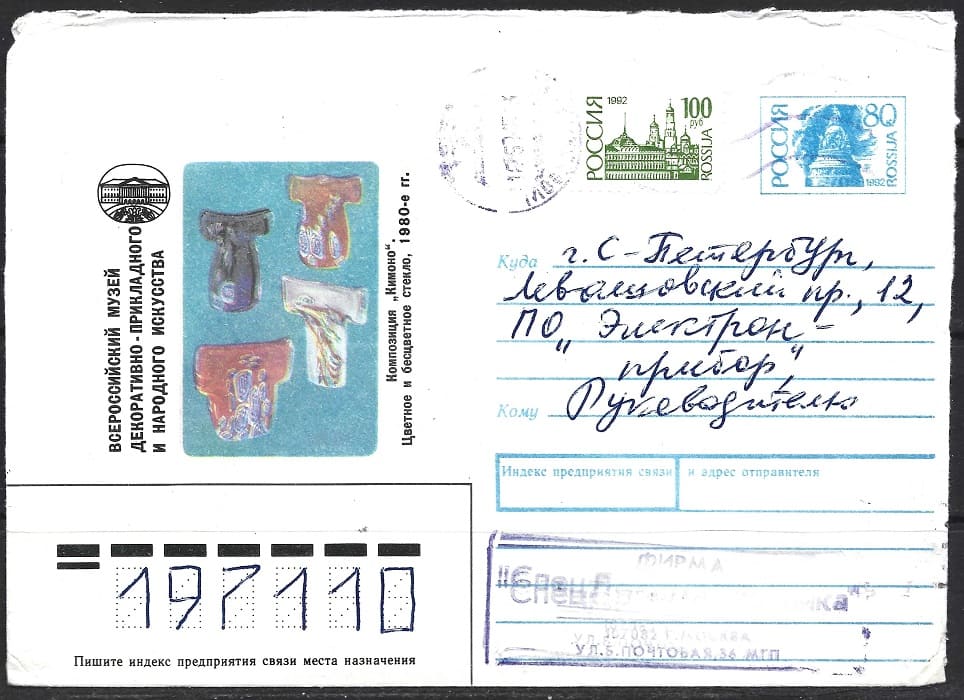 РОССИЯ
1992
100
руб
ROSSIJA
РОССИЯ
80
1992
ROSSIJA
ВСЕРОССИЙСКИЙ МУЗЕЙ
ДЕКОРАТИВНО-ПРИКЛАДНОГО
И НАРОДНОГО ИСКУССТВА
Композиция „Кимоно“.
Цветное и бесцветное стекло, 1980-е гг.
Куда г. С-Петербург,
Левашовский пр., 12,
ПО „Электрон-
прибор,"
Кому Руководителю
Индекс предприятия связи и адрес отправителя
ФИРМА
УЛ.Б.ПОЧТОВАЯ,36 МГП
197110
Пишите индекс предприятия связи места назначения